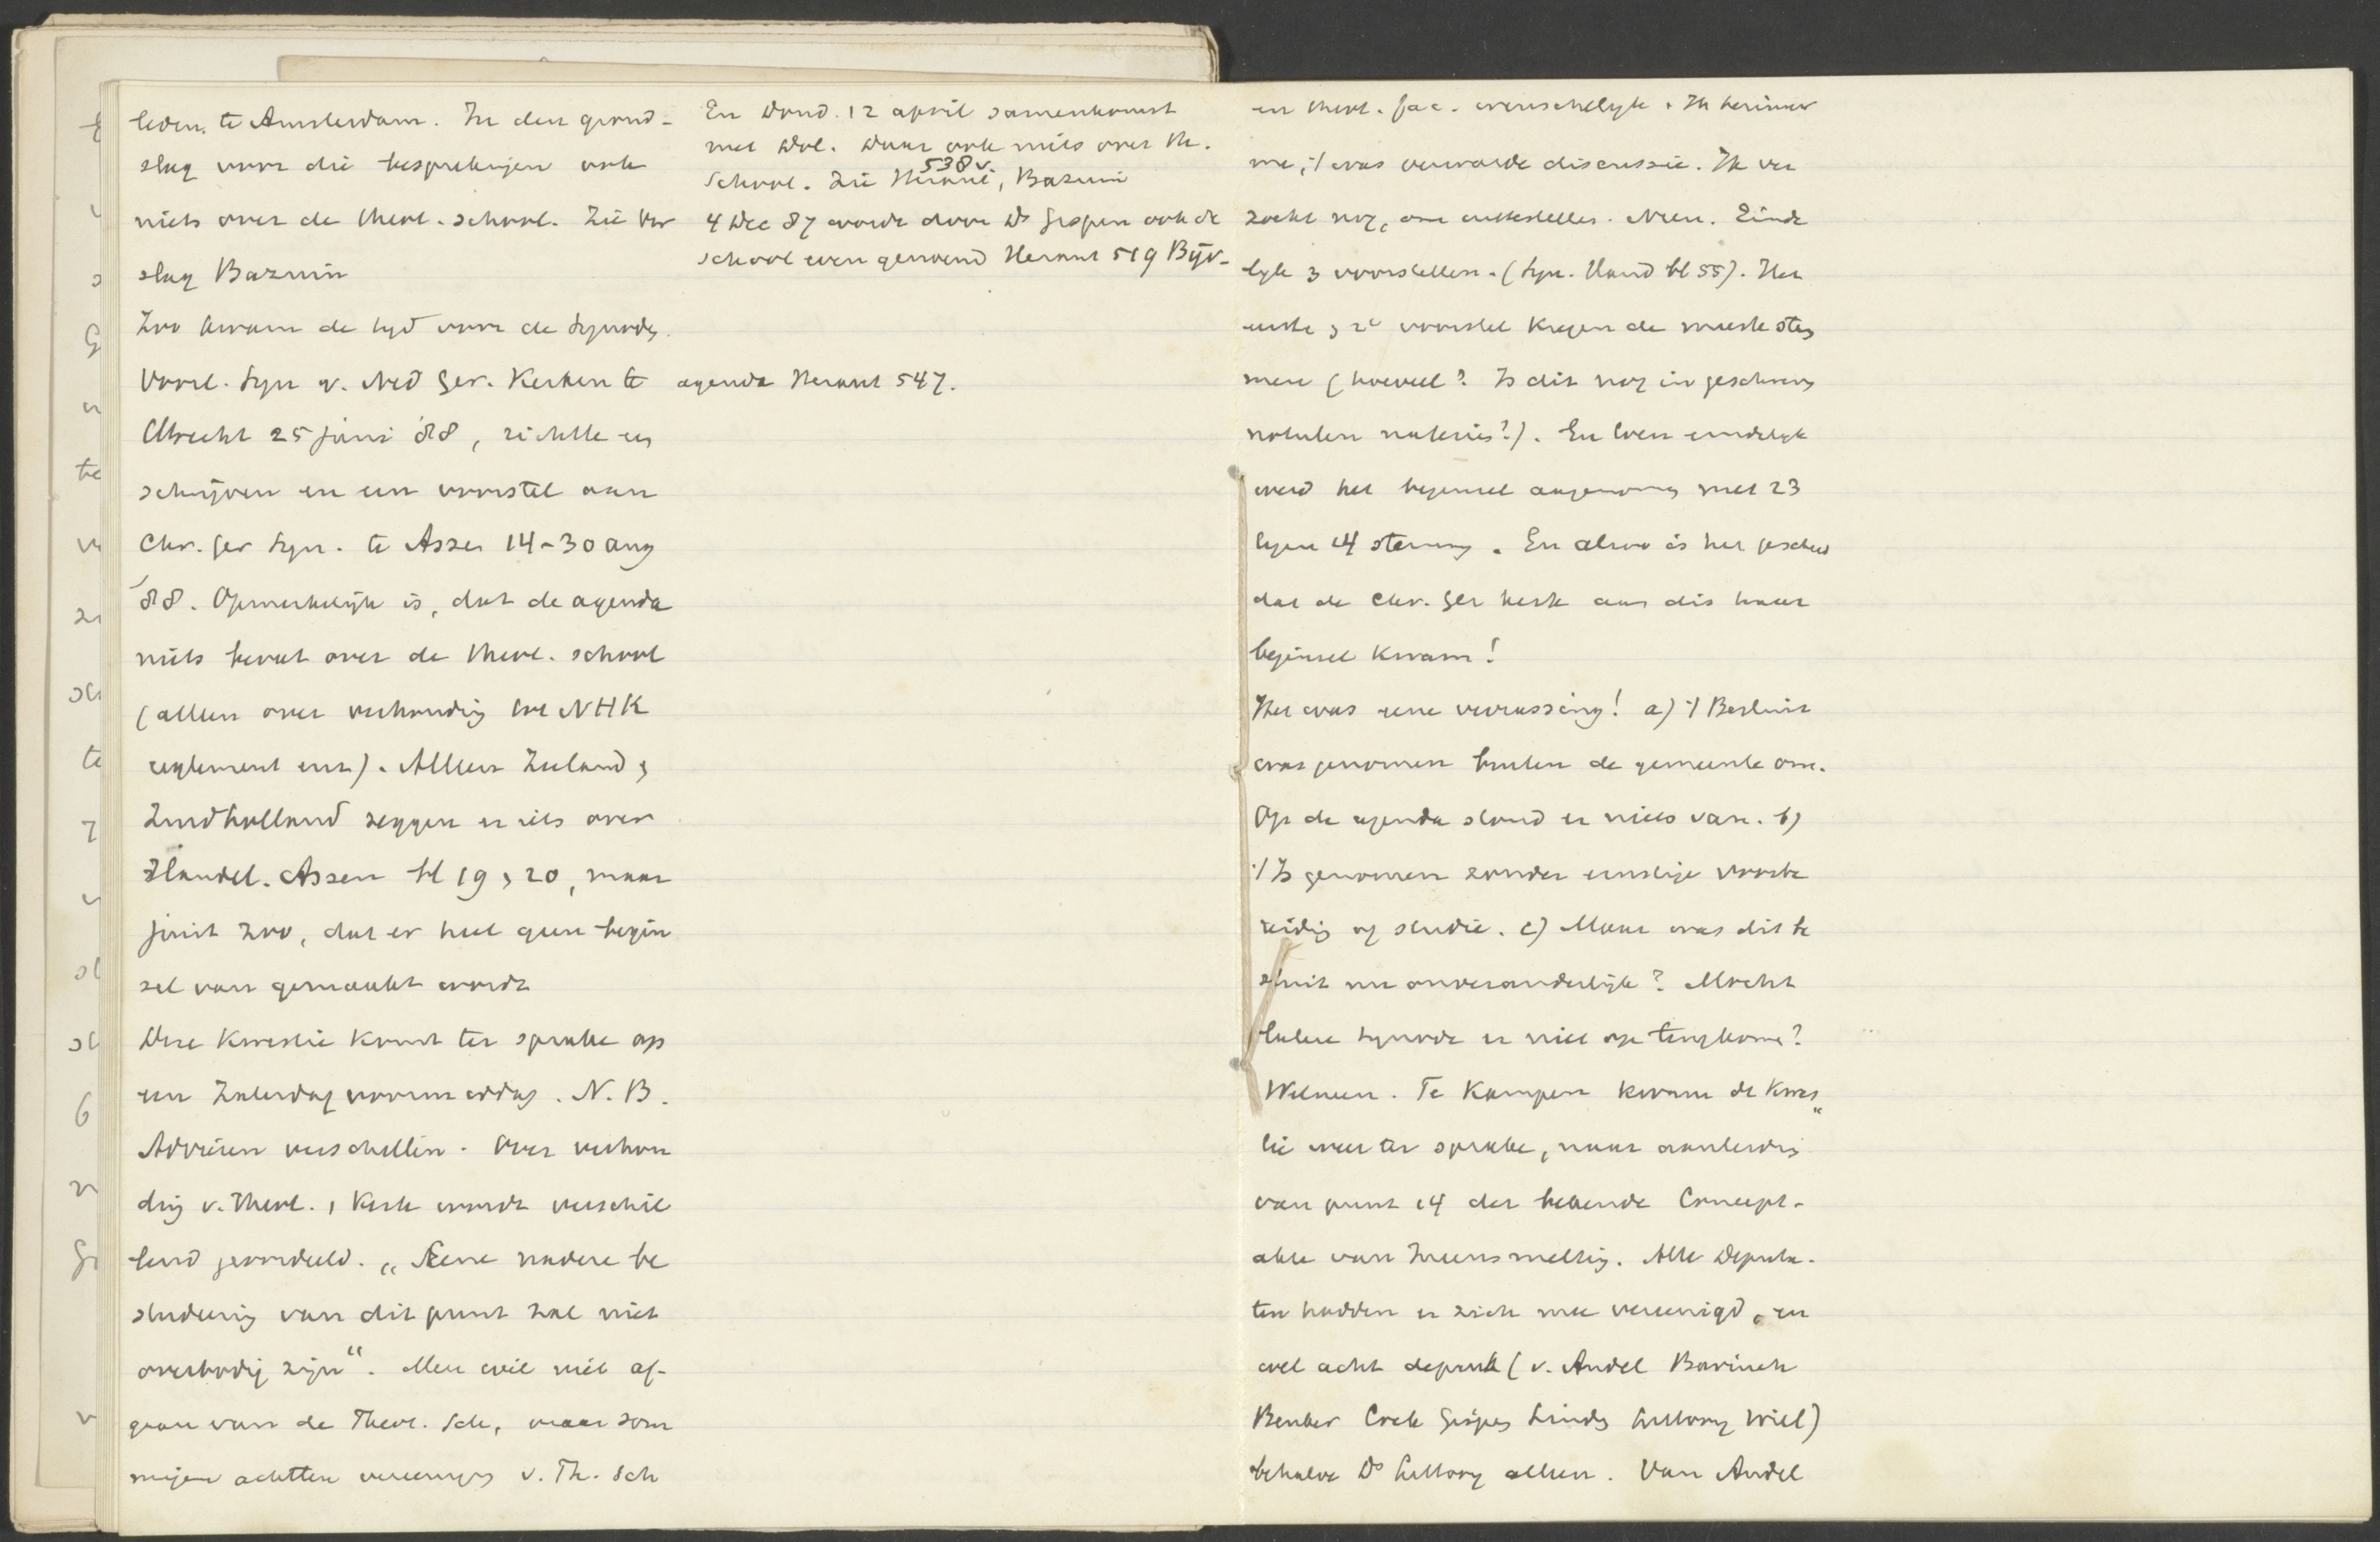 leden te Amsterdam. In den grond-
slag voor die besprekingen ook
niets over de theol. school. Zie Ver
slag Bazuin
Zoo kwam de tyd voor de Synode.
Voorl. Syn v. Ned Ger. Kerken te
Utrecht 25 juni '88, richtte een
schrijven en een voorstel aan
Chr. Ger Syn. te Assen 14-30 aug
'88. Opmerkelijk is, dat de agenda
niets bevat over de theol. school
(alleen over verhouding tot NHK
reglement enz). Alleen Zeeland &
Zuidholland zeggen er iets over
Handel. Assen bl 19, 20, maar
juist zoo, dat er heel geen begin
sel van gemaakt wordt
Deze kwestie komt ter sprake op
een Zaterdagvoormiddag. N.B.
Adviezen verschillen. Over verhou
ding v. theol. & kerk wordt verschil
lend geoordeeld. „Eene nadere be
studeering van dit punt zal niet
overbodig zijn“. Men wil niet af-
gaan van de Theol. Sch, maar som
migen achtten vereeniging v. Th. Sch
En Dond. 12 april samenkomst
met Dol. Daar ook niets over th.
school. Zie Heraut 538v, Bazuin
4 Dec 87 wordt door Ds Gispen ook de
school even genoemd Heraut 519 Bijv-
agenda Heraut 547.
en theol. fac. wenschelijk. Ik herinner
me, 't was verwarde discussie. Ik ver
zocht nog, om uittestellen. Neen. Einde
lyk 3 voorstellen. (Syn. Hand bl 55). Het
eerste & 2e voorstel kregen de meeste stem
men (hoeveel? Is dit nog in geschreven
notulen natezien?). En toen eindelyk
werd het beginsel aangenomen met 23
tegen 14 stemmen. En alzoo is het geschied
dat de Chr. Ger kerk aan dis haar
beginsel kwam!
Het was eene verrassing! a) 't Besluit
was genomen buiten de gemeente om.
Op de agenda stond er niets van. b)
't Is genomen zonder ernstige voorbe
reiding of studie. c) Maar was dit be
sluit nu onveranderlijk? Mocht
latere synode er niet op terugkomen?
Welneen. Te Kampen kwam de kwes„
tie weer ter sprake, naar aanleiding
van punt 14 der bekende Concept-
akte van Ineensmelting. Alle Deputa-
ten hadden er zich mee vereenigd, en
wel acht deputa (v. Andel Bavinck
Beuker Cock Gispen Lindeb Littooy Wiel)
behalve Ds Littooy alleen. Van Andel